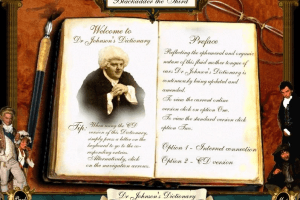 Blackadder the Third
Welcome to
Dr Johnson's Dictionary
Tip:
When using the CD
version of this Dictionary,
simply press a button on the
keyboard to go to the co-
responding entry.
Alternatively, click
on the navigation screen.
Preface
Reflecting the ephemeral and organic
nature of this fluid mother tongue of
ours Dr Johnson's Dictionary is
continuously being updated and
amended.
To view the current version
version click on option One.
To view the standard version click
option Two.
Option 1 - Internet connection
Option 2 - CD version
Dr Johnson's Dictionary